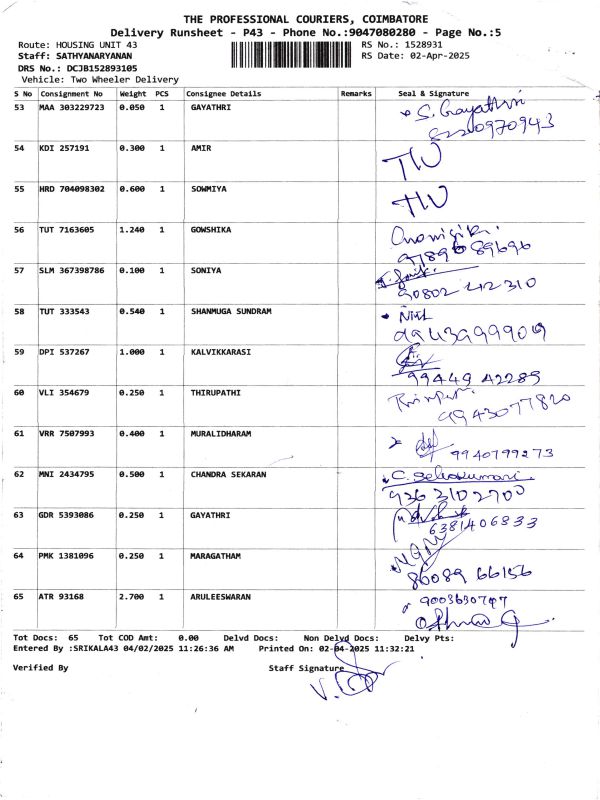 THE PROFESSIONAL COURIERS, COIMBATORE
Delivery Runsheet - P43 - Phone No.:9047080280 - Page No.:5
Route: HOUSING UNIT 43 RS No.: 1528931
Staff: SATHYANARYANAN RS Date: 02-Apr-2025
DRS No.: DCJB152893105
Vehicle: Two Wheeler Delivery
S No Consignment No Weight PCS Consignee Details Remarks Seal & Signature
53 MAA 303229723 0.050 1 GAYATHRI S. Gayathri
8220970943
54 KDI 257191 0.300 1 AMIR
55 HRD 704098302 0.600 1 SOWMIYA
56 TUT 7163605 1.240 1 GOWSHIKA
9789689696
57 SLM 367398786 0.100 1 SONIYA
90802 42310
58 TUT 333543 0.540 1 SHANMUGA SUNDRAM
9943999909
59 DPI 537267 1.000 1 KALVIKKARASI
99449 42289
60 VLI 354679 0.250 1 THIRUPATHI
9943077820
61 VRR 7507993 0.400 1 MURALIDHARAM
9940799273
62 MNI 2434795 0.500 1 CHANDRA SEKARAN C. Selvakumari
936 3102700
63 GDR 5393086 0.250 1 GAYATHRI
6381406833
64 PMK 1381096 0.250 1 MARAGATHAM
86089 66156
65 ATR 93168 2.700 1 ARULEESWARAN
Tot Docs: 65 Tot COD Amt: 0.00 Delvd Docs: Non Delvd Docs: Delvy Pts:
Entered By :SRIKALA43 04/02/2025 11:26:36 AM Printed On: 02-04-2025 11:32:21
Verified By Staff Signature